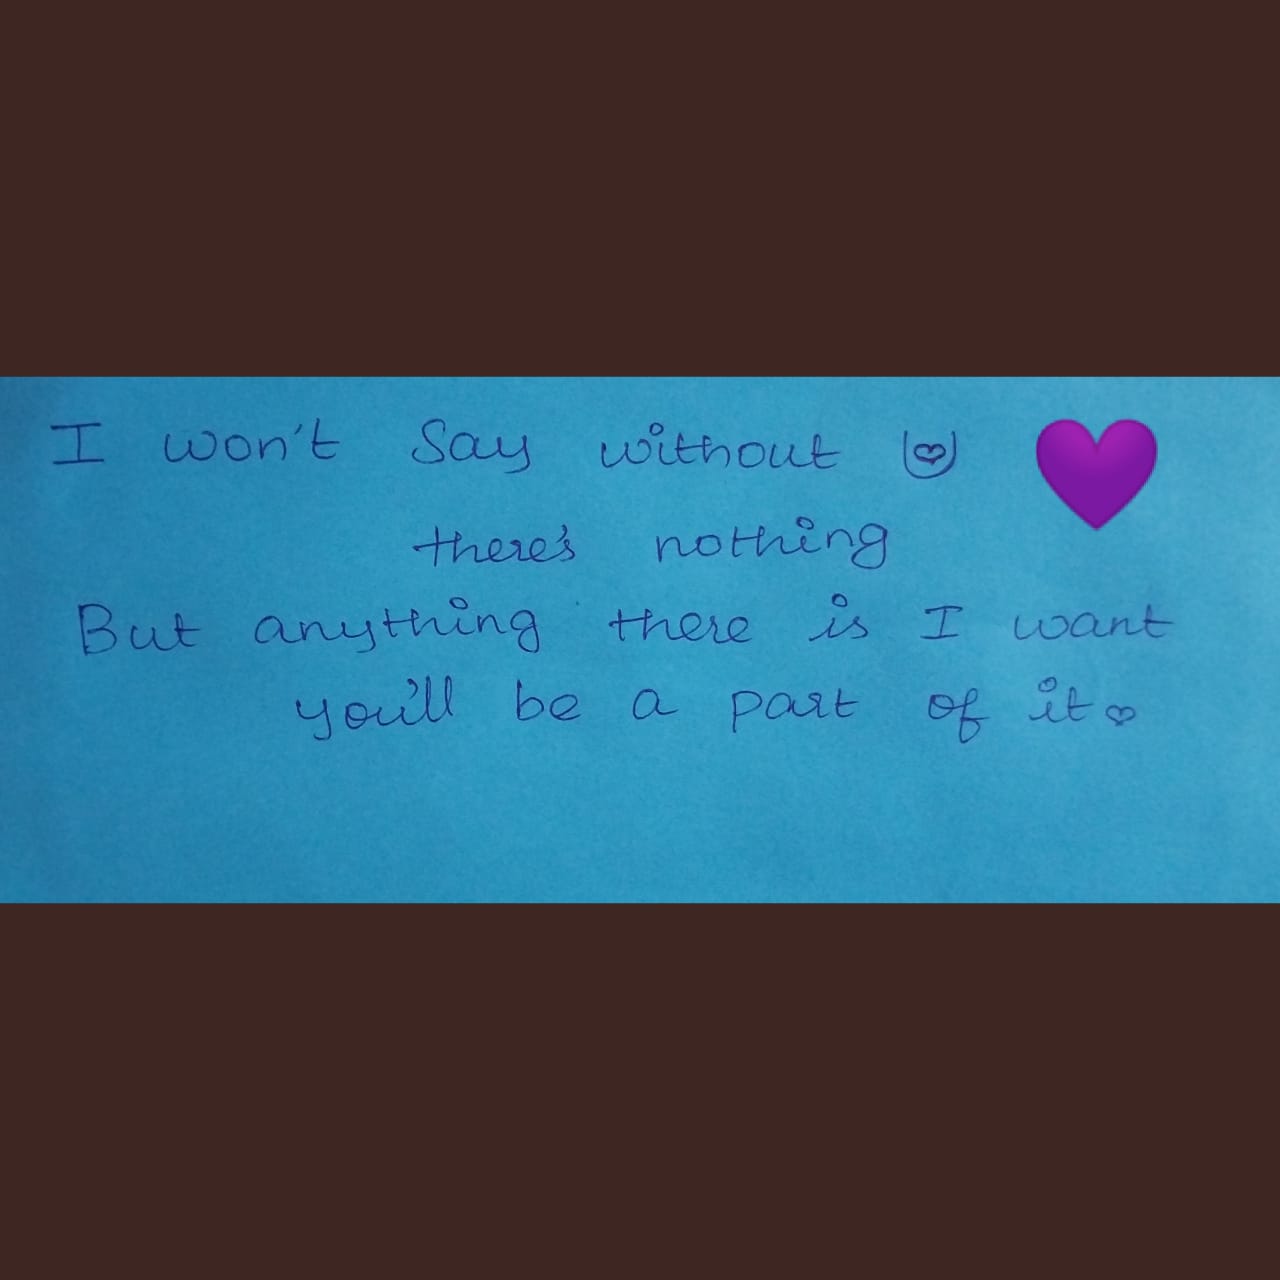 I won't Say without U
there's nothing
But anything there is I want
you'll be a part of it